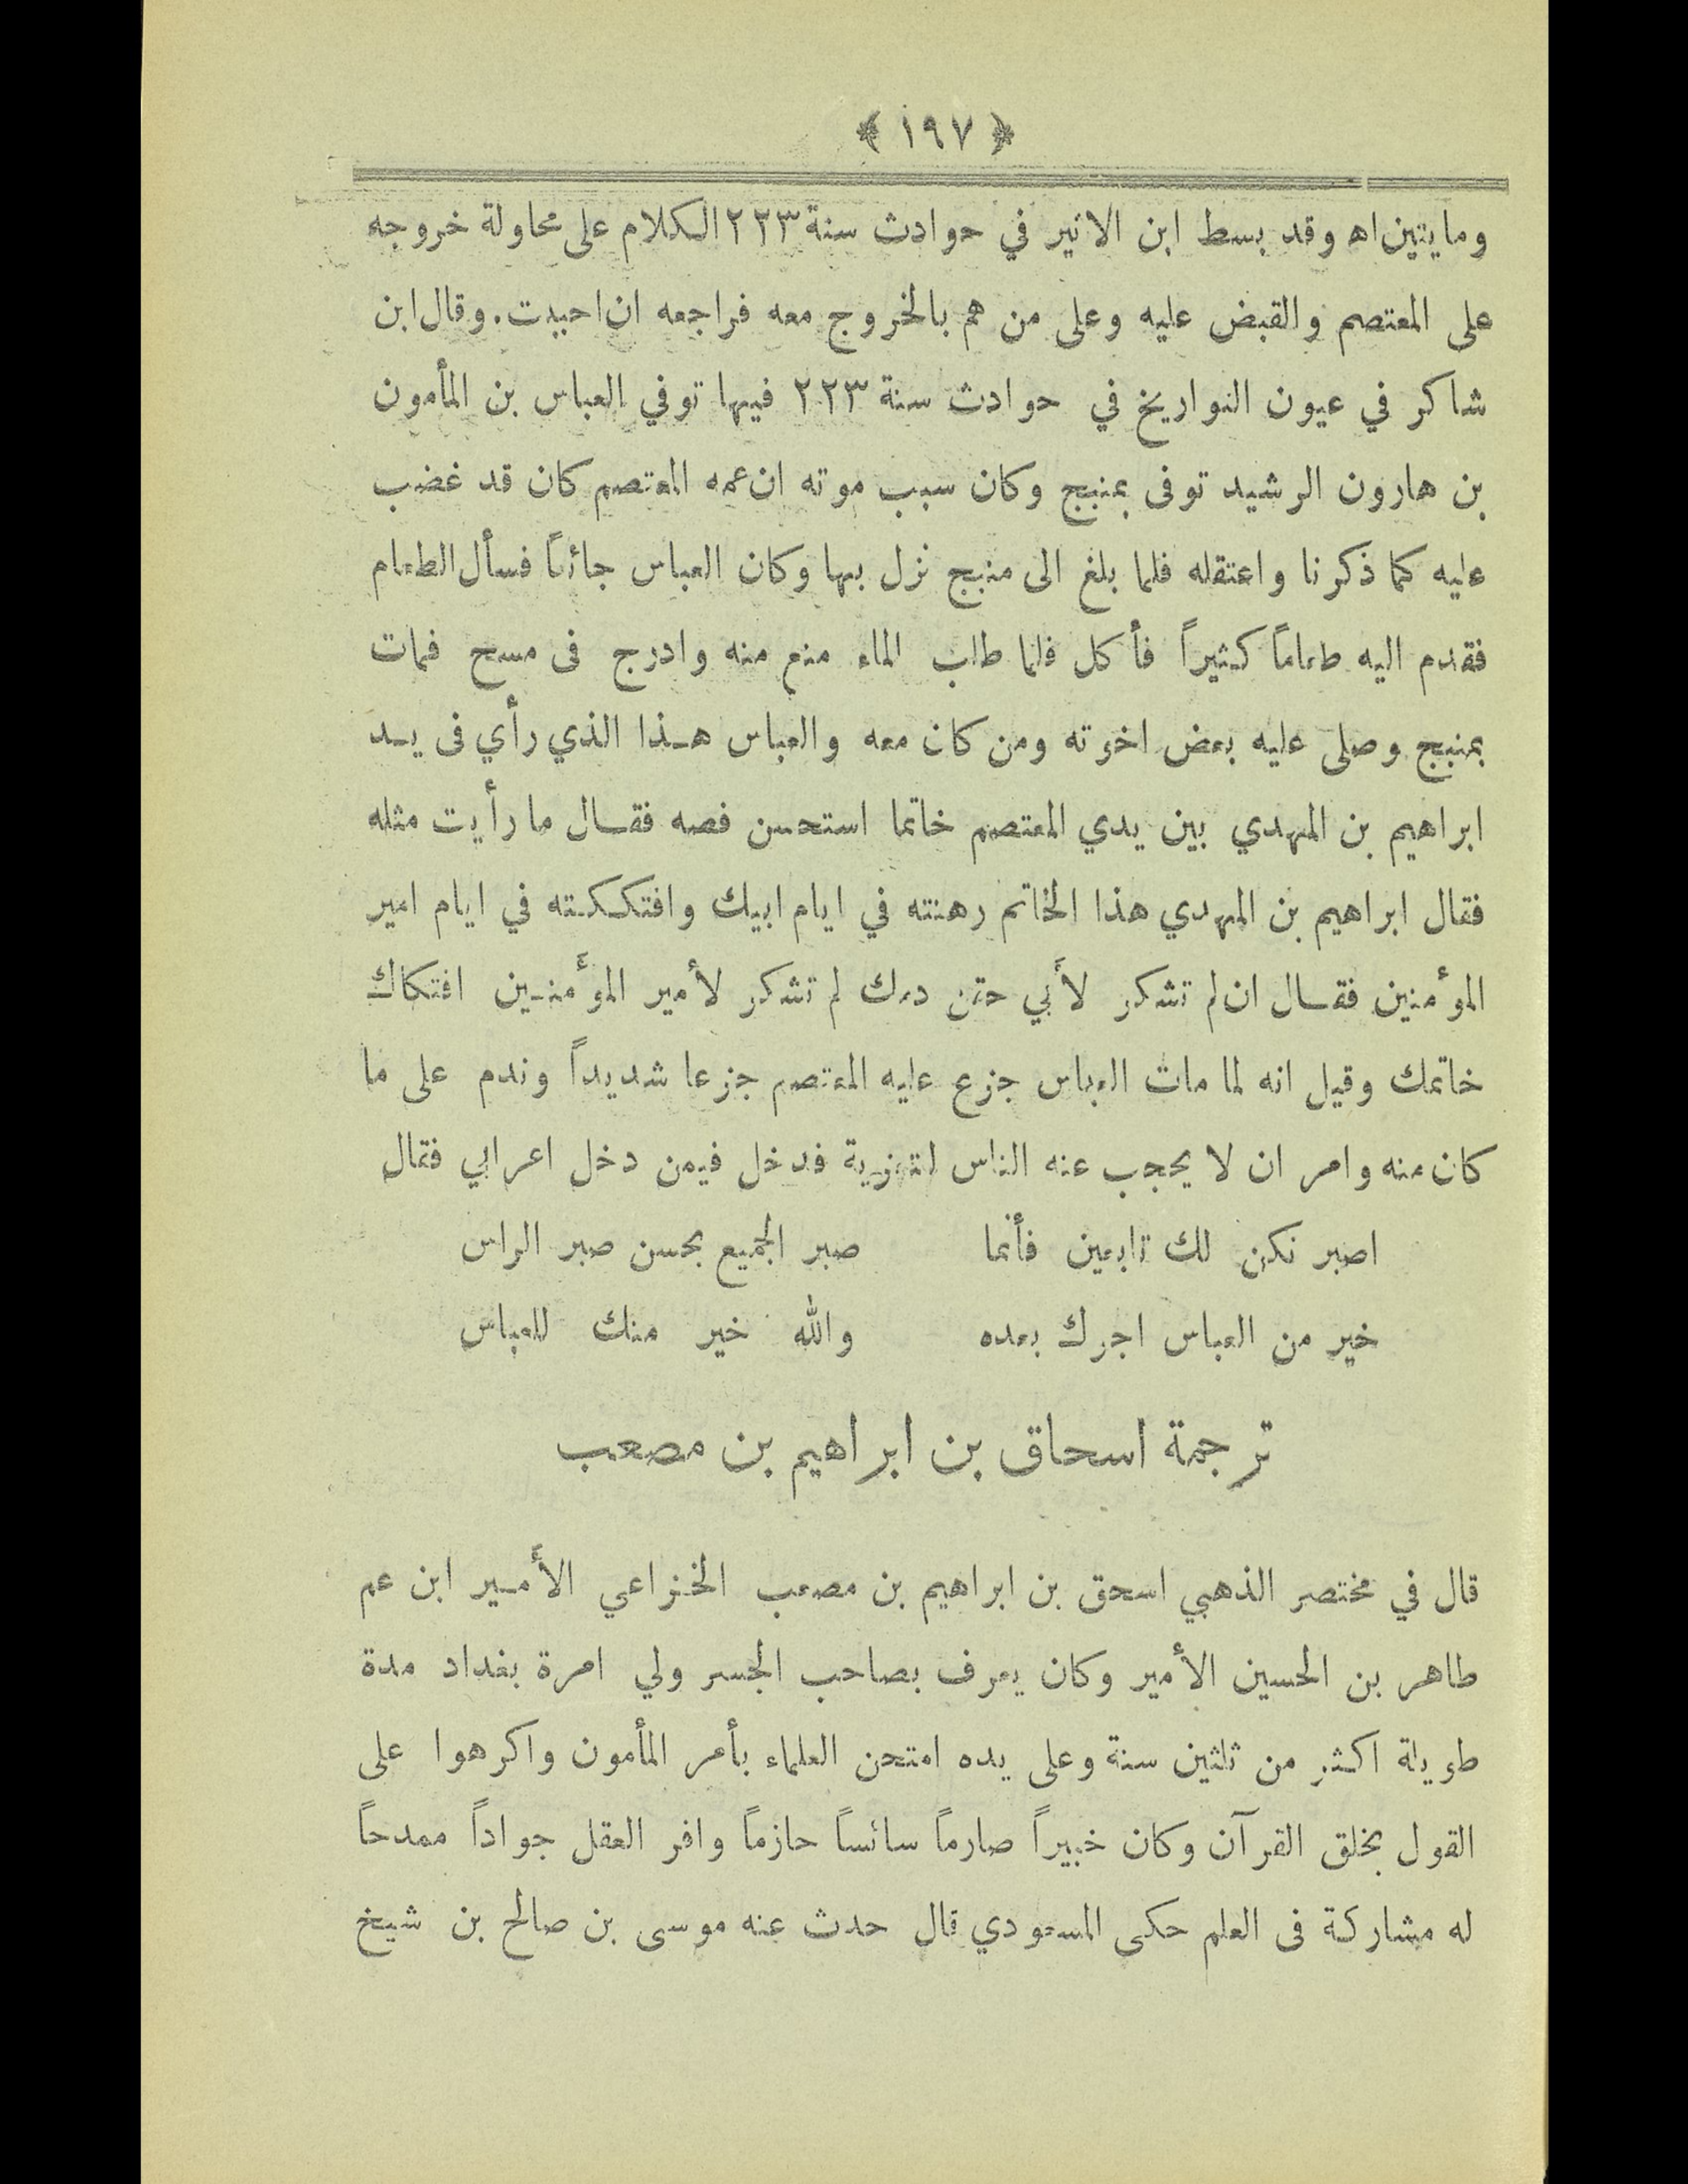 ﴿ ١٩٧ ﴾
ومايتين اه وقد بسط ابن الاثير في حوادث سنة ٢٢٣ الكلام على محاولة خروجه
على المعتصم والقبض عليه وعلى من هم بالخروج معه فراجعه ان احببت. وقال ابن
شاكر في عيون التواريخ في حوادث سنة ٢٢٣ فيها توفي العباس بن المأمون
بن هارون الرشيد توفى بمنبج وكان سبب موته ان عمه المعتصم كان قد غضب
عليه كما ذكرنا واعتقله فلما بلغ الى منبج نزل بها وكان العباس جائعاً فسأل الطعام
فقدم اليه طعاماً كثيراً فأكل فلما طلب الماء منع منه وادرج فى مسح فمات
بمنبج وصلى عليه بعض اخوته ومن كان معه والعباس هـذا الذي رأي فى يـد
ابراهيم بن المهدي بين يدي المعتصم خاتما استحسن فصه فقـال ما رأيت مثله
فقال ابراهيم بن المهدي هذا الخاتم رهنته في ايام ابيك وافتكـكـته في ايام امير
المؤمنين فقـال ان لم تشكر لأبي حقن دمك لم تشكر لأمير المؤمنـين افتكاك
خاتمك وقيل انه لما مات العباس جزع عليه المعتصم جزعا شديداً وندم على ما
كان منه وامر ان لا يحجب عنه الناس لتعزية فدخل فيمن دخل اعرابي فقال
اصبر نكن لك تابعين فأنما صبر الجميع بحسن صبر الراس
خير من العباس اجرك بعده والله خير منك للعباس
ترجمة اسحاق بن ابراهيم بن مصعب
قال في مختصر الذهبي اسحق بن ابراهيم بن مصعب الخزاعي الأمـير ابن عم
طاهر بن الحسين الأمير وكان يعرف بصاحب الجسر ولي امرة بغداد مدة
طويلة اكثر من ثلثين سنة وعلى يده امتحن العلماء بأمر المأمون واكرهوا على
القول بخلق القرآن وكان خبيراً صارماً سائساً حازماً وافر العقل جواداً ممدحاً
له مشاركة فى العلم حكى المسعودي قال حدث عنه موسى بن صالح بن شيخ